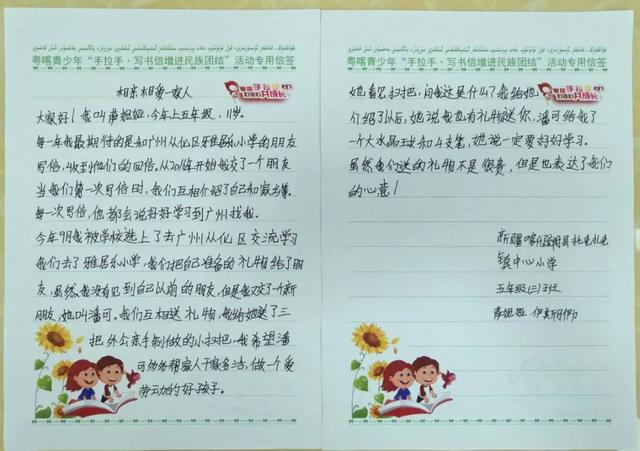 粤喀青少年“手拉手·写书信增进民族团结”活动专用信签
手拉手
共成长
相亲相爱一家人
大家好！我叫 娅，今年上五年级，11岁。
每一年我最期待的是和广州从化区雅居乐小学的朋友
写信，收到他们的回信。从2018年开始我交了一个朋友
当我们第一次写信时，我们互相介绍了自己和家乡
每一次写信，他都会说好好学习到广州找我。
今年9月我被学校选上了去广州从化区交流学习
我们去了雅居乐小学，我们把自己准备的礼物给了朋
友，虽然我没有见到自己以前的朋友，但是我又交了一个新
朋友，她叫潘可。我们互相送礼物，我给她送了三
把外公亲手制做的小扫把，我希望潘
可 帮家人干家务活，做一个爱
劳动的好孩子。
粤喀青少年“手拉手·写书信增进民族团结”活动专用信签
手拉手
共成长
她看见扫把，问我这是什么？我给她
介绍了以后，她说我也有礼物送你，潘可给我了
一个大水晶球和4支笔，她说一定要好好学习。
虽然我们送的礼物不是很贵，但是也表达了我们
的心意！
新疆喀什
镇中心小学
五年级(三)班
娅 伊